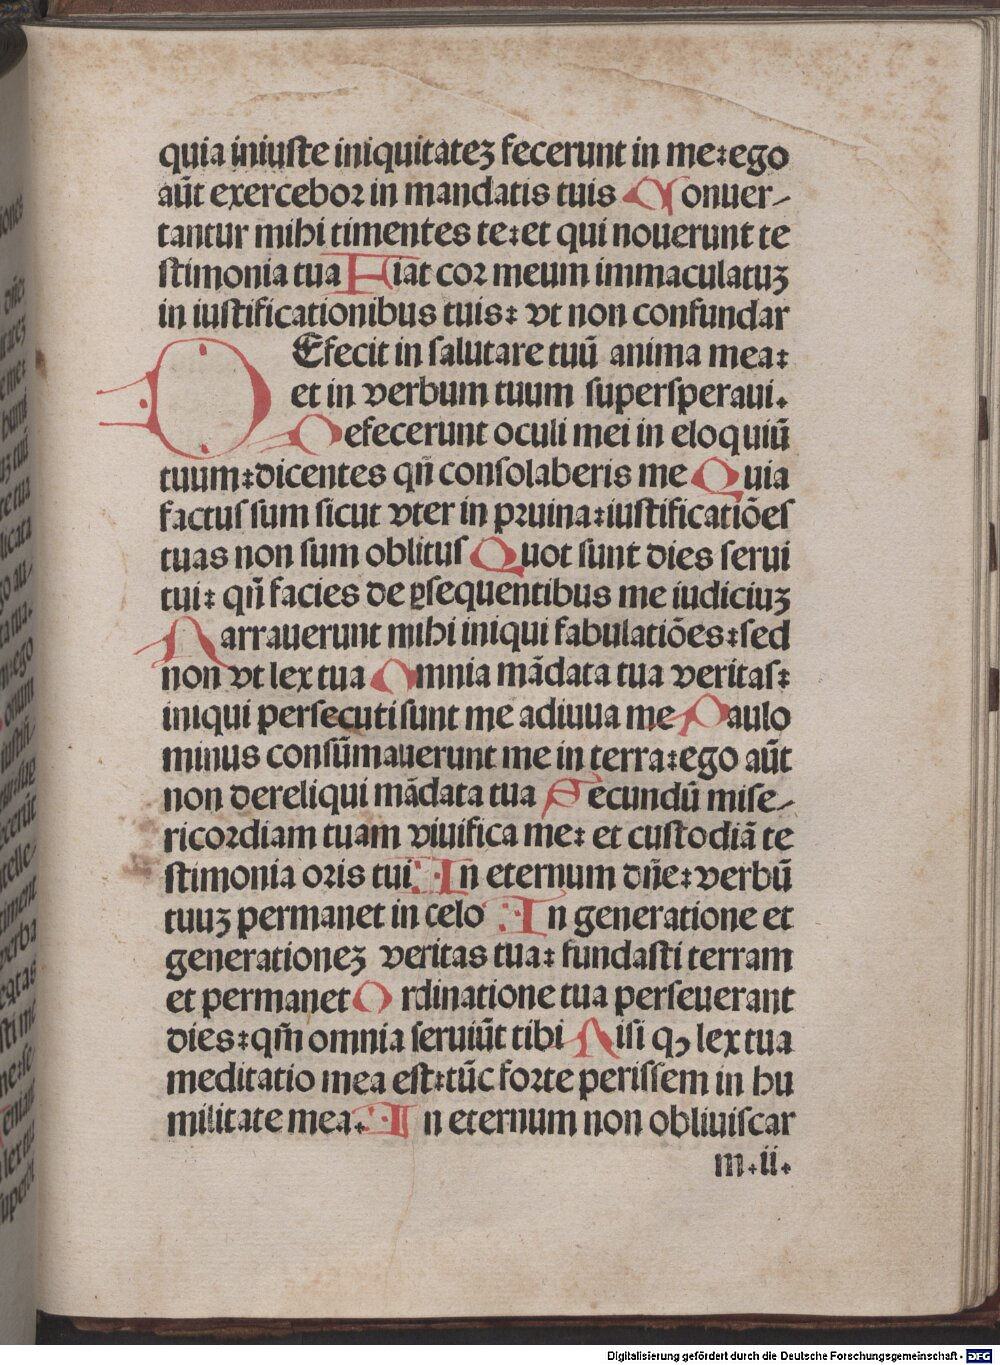 quia iniuste iniquitatez fecerunt in me: ego
aūt exercebor in mandatis tuis Conuer-
tantur mihi timentes te: et qui nouerunt te
stimonia tua Fiat cor meum immaculatuz
in iustificationibus tuis: vt non confundar
DEfecit in salutare tuū anima mea:
et in verbum tuum supersperaui.
Defecerunt oculi mei in eloquiū
tuum: dicentes qñ consolaberis me Quia
factus sum sicut vter in pruina: iustificatiōes
tuas non sum oblitus Quot sunt dies serui
tui: qñ facies de ꝑsequentibus me iudiciuz
Narrauerunt mihi iniqui fabulatiōes: sed
non vt lex tua Omnia mādata tua veritas:
iniqui persecuti sunt me adiuua me Paulo
minus consūmauerunt me in terra: ego aūt
non dereliqui mādata tua Secundū mise-
ricordiam tuam viuifica me: et custodiā te
stimonia oris tui In eternum dñe: verbū
tuuz permanet in celo In generatione et
generationez veritas tua: fundasti terram
et permanet Ordinatione tua perseuerant
dies: qm̄ omnia seruiūt tibi Nisi qꝫ lex tua
meditatio mea est: tūc forte perissem in hu
militate mea. In eternum non obliuiscar
m.ii.
Digitalisierung gefördert durch die Deutsche Forschungsgemeinschaft - DFG